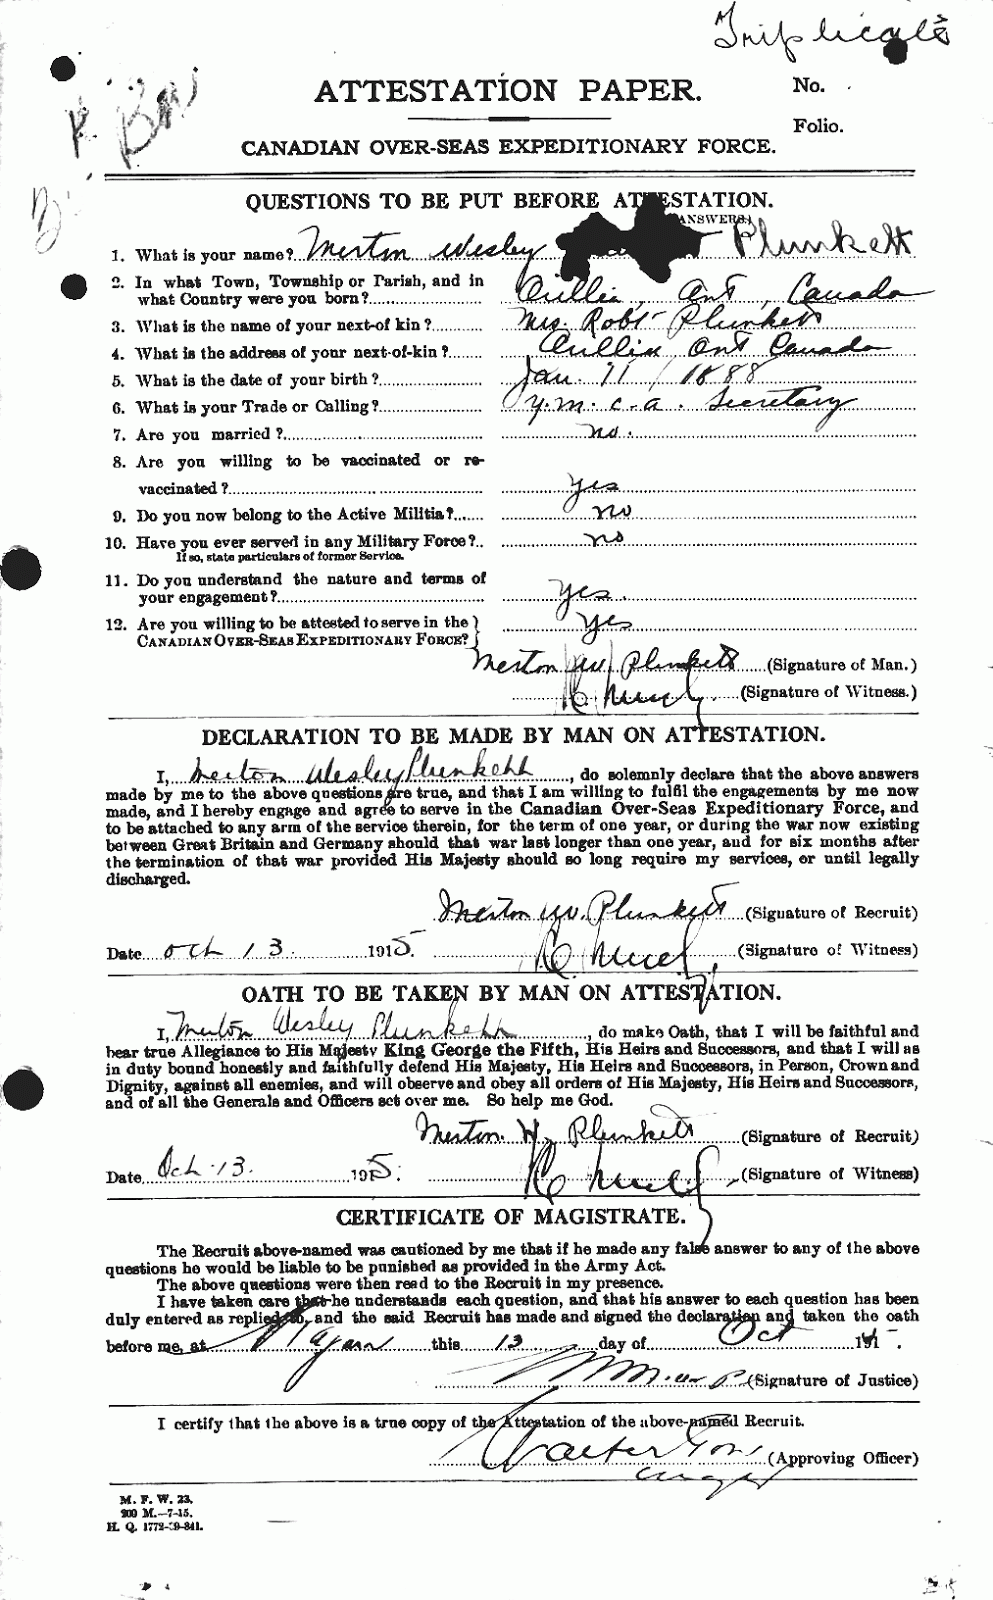 Triplicate
ATTESTATION PAPER.
No.
Folio.
CANADIAN OVER-SEAS EXPEDITIONARY FORCE.
QUESTIONS TO BE PUT BEFORE ATTESTATION.
(ANSWERS.)
1. What is your name? Merton Wesley Plunkett
2. In what Town, Township or Parish, and in
what Country were you born? Orillia, Ont, Canada
3. What is the name of your next-of kin? Mrs. Robt Plunkett
4. What is the address of your next-of-kin? Orillia Ont Canada
5. What is the date of your birth? Jan. 11 / 1888
6. What is your Trade or Calling? Y.M.C.A. Secretary
7. Are you married? no.
8. Are you willing to be vaccinated or re-
vaccinated? yes
9. Do you now belong to the Active Militia? no
10. Have you ever served in any Military Force? no
If so, state particulars of former Service.
11. Do you understand the nature and terms of
your engagement? Yes.
12. Are you willing to be attested to serve in the
CANADIAN OVER-SEAS EXPEDITIONARY FORCE? Yes
Merton W Plunkett (Signature of Man.)
(Signature of Witness.)
DECLARATION TO BE MADE BY MAN ON ATTESTATION.
I, Merton Wesley Plunkett, do solemnly declare that the above answers
made by me to the above questions are true, and that I am willing to fulfil the engagements by me now
made, and I hereby engage and agree to serve in the Canadian Over-Seas Expeditionary Force, and
to be attached to any arm of the service therein, for the term of one year, or during the war now existing
between Great Britain and Germany should that war last longer than one year, and for six months after
the termination of that war provided His Majesty should so long require my services, or until legally
discharged.
Merton W. Plunkett (Signature of Recruit)
Date Oct 13 1915 (Signature of Witness)
OATH TO BE TAKEN BY MAN ON ATTESTATION.
I, Merton Wesley Plunkett, do make Oath, that I will be faithful and
bear true Allegiance to His Majesty King George the Fifth, His Heirs and Successors, and that I will as
in duty bound honestly and faithfully defend His Majesty, His Heirs and Successors, in Person, Crown and
Dignity, against all enemies, and will observe and obey all orders of His Majesty, His Heirs and Successors,
and of all the Generals and Officers set over me. So help me God.
Merton W. Plunkett (Signature of Recruit)
Date Oct. 13. 1915. (Signature of Witness)
CERTIFICATE OF MAGISTRATE.
The Recruit above-named was cautioned by me that if he made any false answer to any of the above
questions he would be liable to be punished as provided in the Army Act.
The above questions were then read to the Recruit in my presence.
I have taken care that he understands each question, and that his answer to each question has been
duly entered as replied to, and the said Recruit has made and signed the declaration and taken the oath
before me, at this 13 day of Oct 1915.
(Signature of Justice)
I certify that the above is a true copy of the Attestation of the above-named Recruit.
(Approving Officer)
M. F. W. 23.
200 M.—7-15.
H. Q. 1772-39-841.